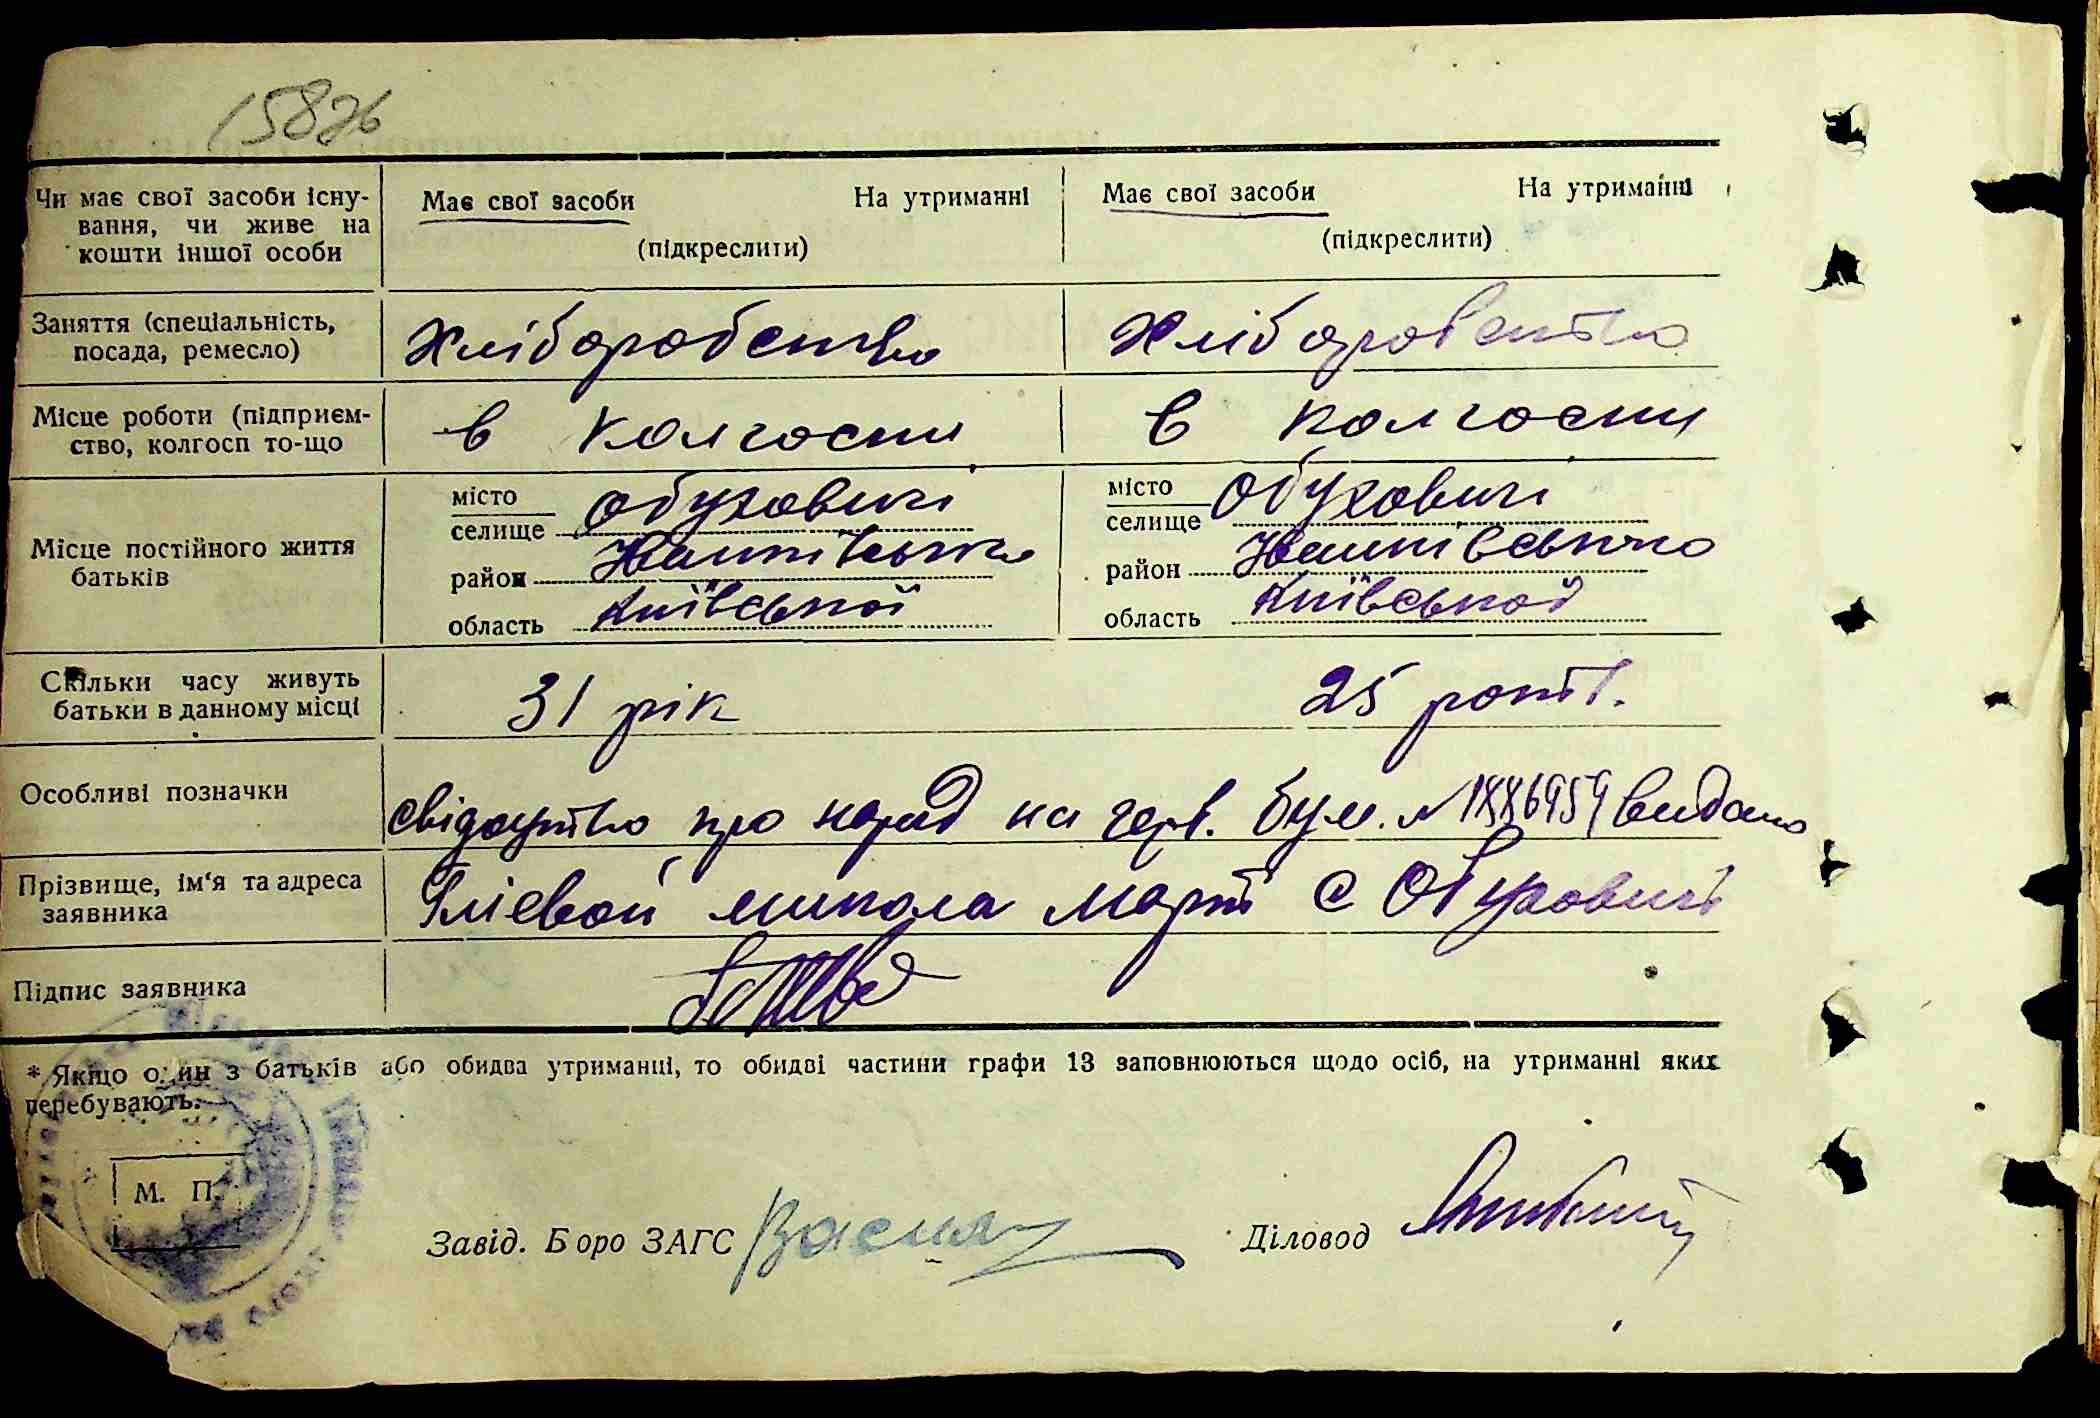 158 зв
Чи має свої засоби існу-
вання, чи живе на
кошти іншої особи
Має свої засоби На утриманні
(підкреслити)
Має свої засоби На утриманні
(підкреслити)
Заняття (спеціальність,
посада, ремесло)
Хліборобство
Хліборобство
Місце роботи (підприєм-
ство, колгосп то-що
в колгоспи
в колгоспи
Місце постійного життя
батьків
місто
селище Обуховичі
район
область Київської
місто
селище Обуховичі
район
область Київської
Скільки часу живуть
батьки в данному місці
31 рік
25 років.
Особливі позначки
свідоцтво про народ на черв. бум. № 1886959 видано
Прізвище, ім‘я та адреса
заявника
микола Март с Обуховичі
Підпис заявника
* Якщо один з батьків або обидва утриманні, то обидві частини графи 13 заповнюються щодо осіб, на утриманні яких
перебувають.
М. П.
Завід. Боро ЗАГС
Діловод